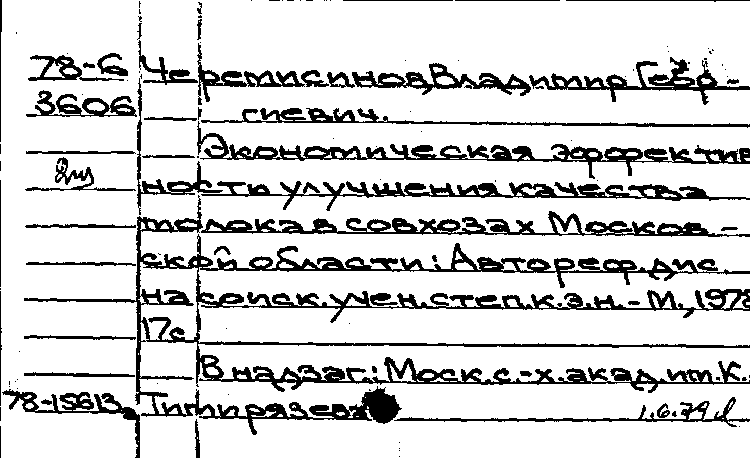 78-6 Черемисинов, Владимир Геор-
3606 гиевич.
Экономическая эффектив
ность улучшения качества
молока в совхозах Москов-
ской области: Автореф. дис.
на соиск. учен. степ. к.э.н. - М., 1978
17с
В надзаг.: Моск. с.-х. акад. им. К.
78-15613 Тимирязева 1.6.79